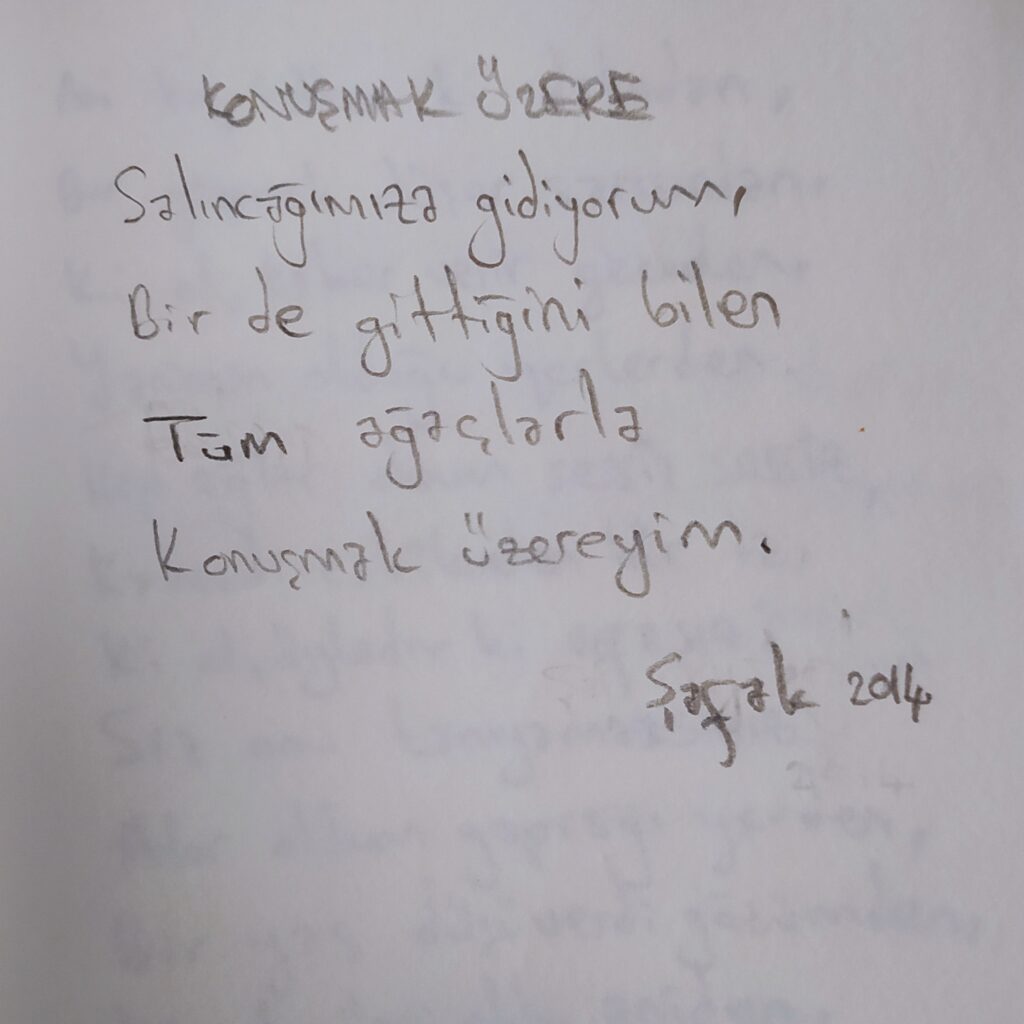 KONUŞMAK ÜZERE
Salıncağımıza gidiyorum,
Bir de gittiğini bilen
Tüm ağaçlarla
Konuşmak üzereyim.
Şafak 2014